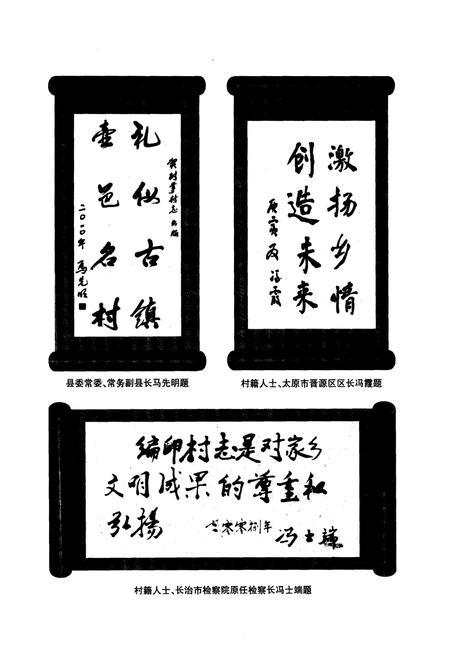 贺树掌村志出版
礼仪古镇
壶邑名村
二〇一〇年 马先明
激扬乡情
创造未来
庚寅夏 冯霞
县委常委、常务副县长马先明题
村籍人士、太原市晋源区区长冯霞题
编印村志是对家乡
文明成果的尊重和
弘揚 零零捌年 冯士端
村籍人士、长治市检察院原任检察长冯士端题